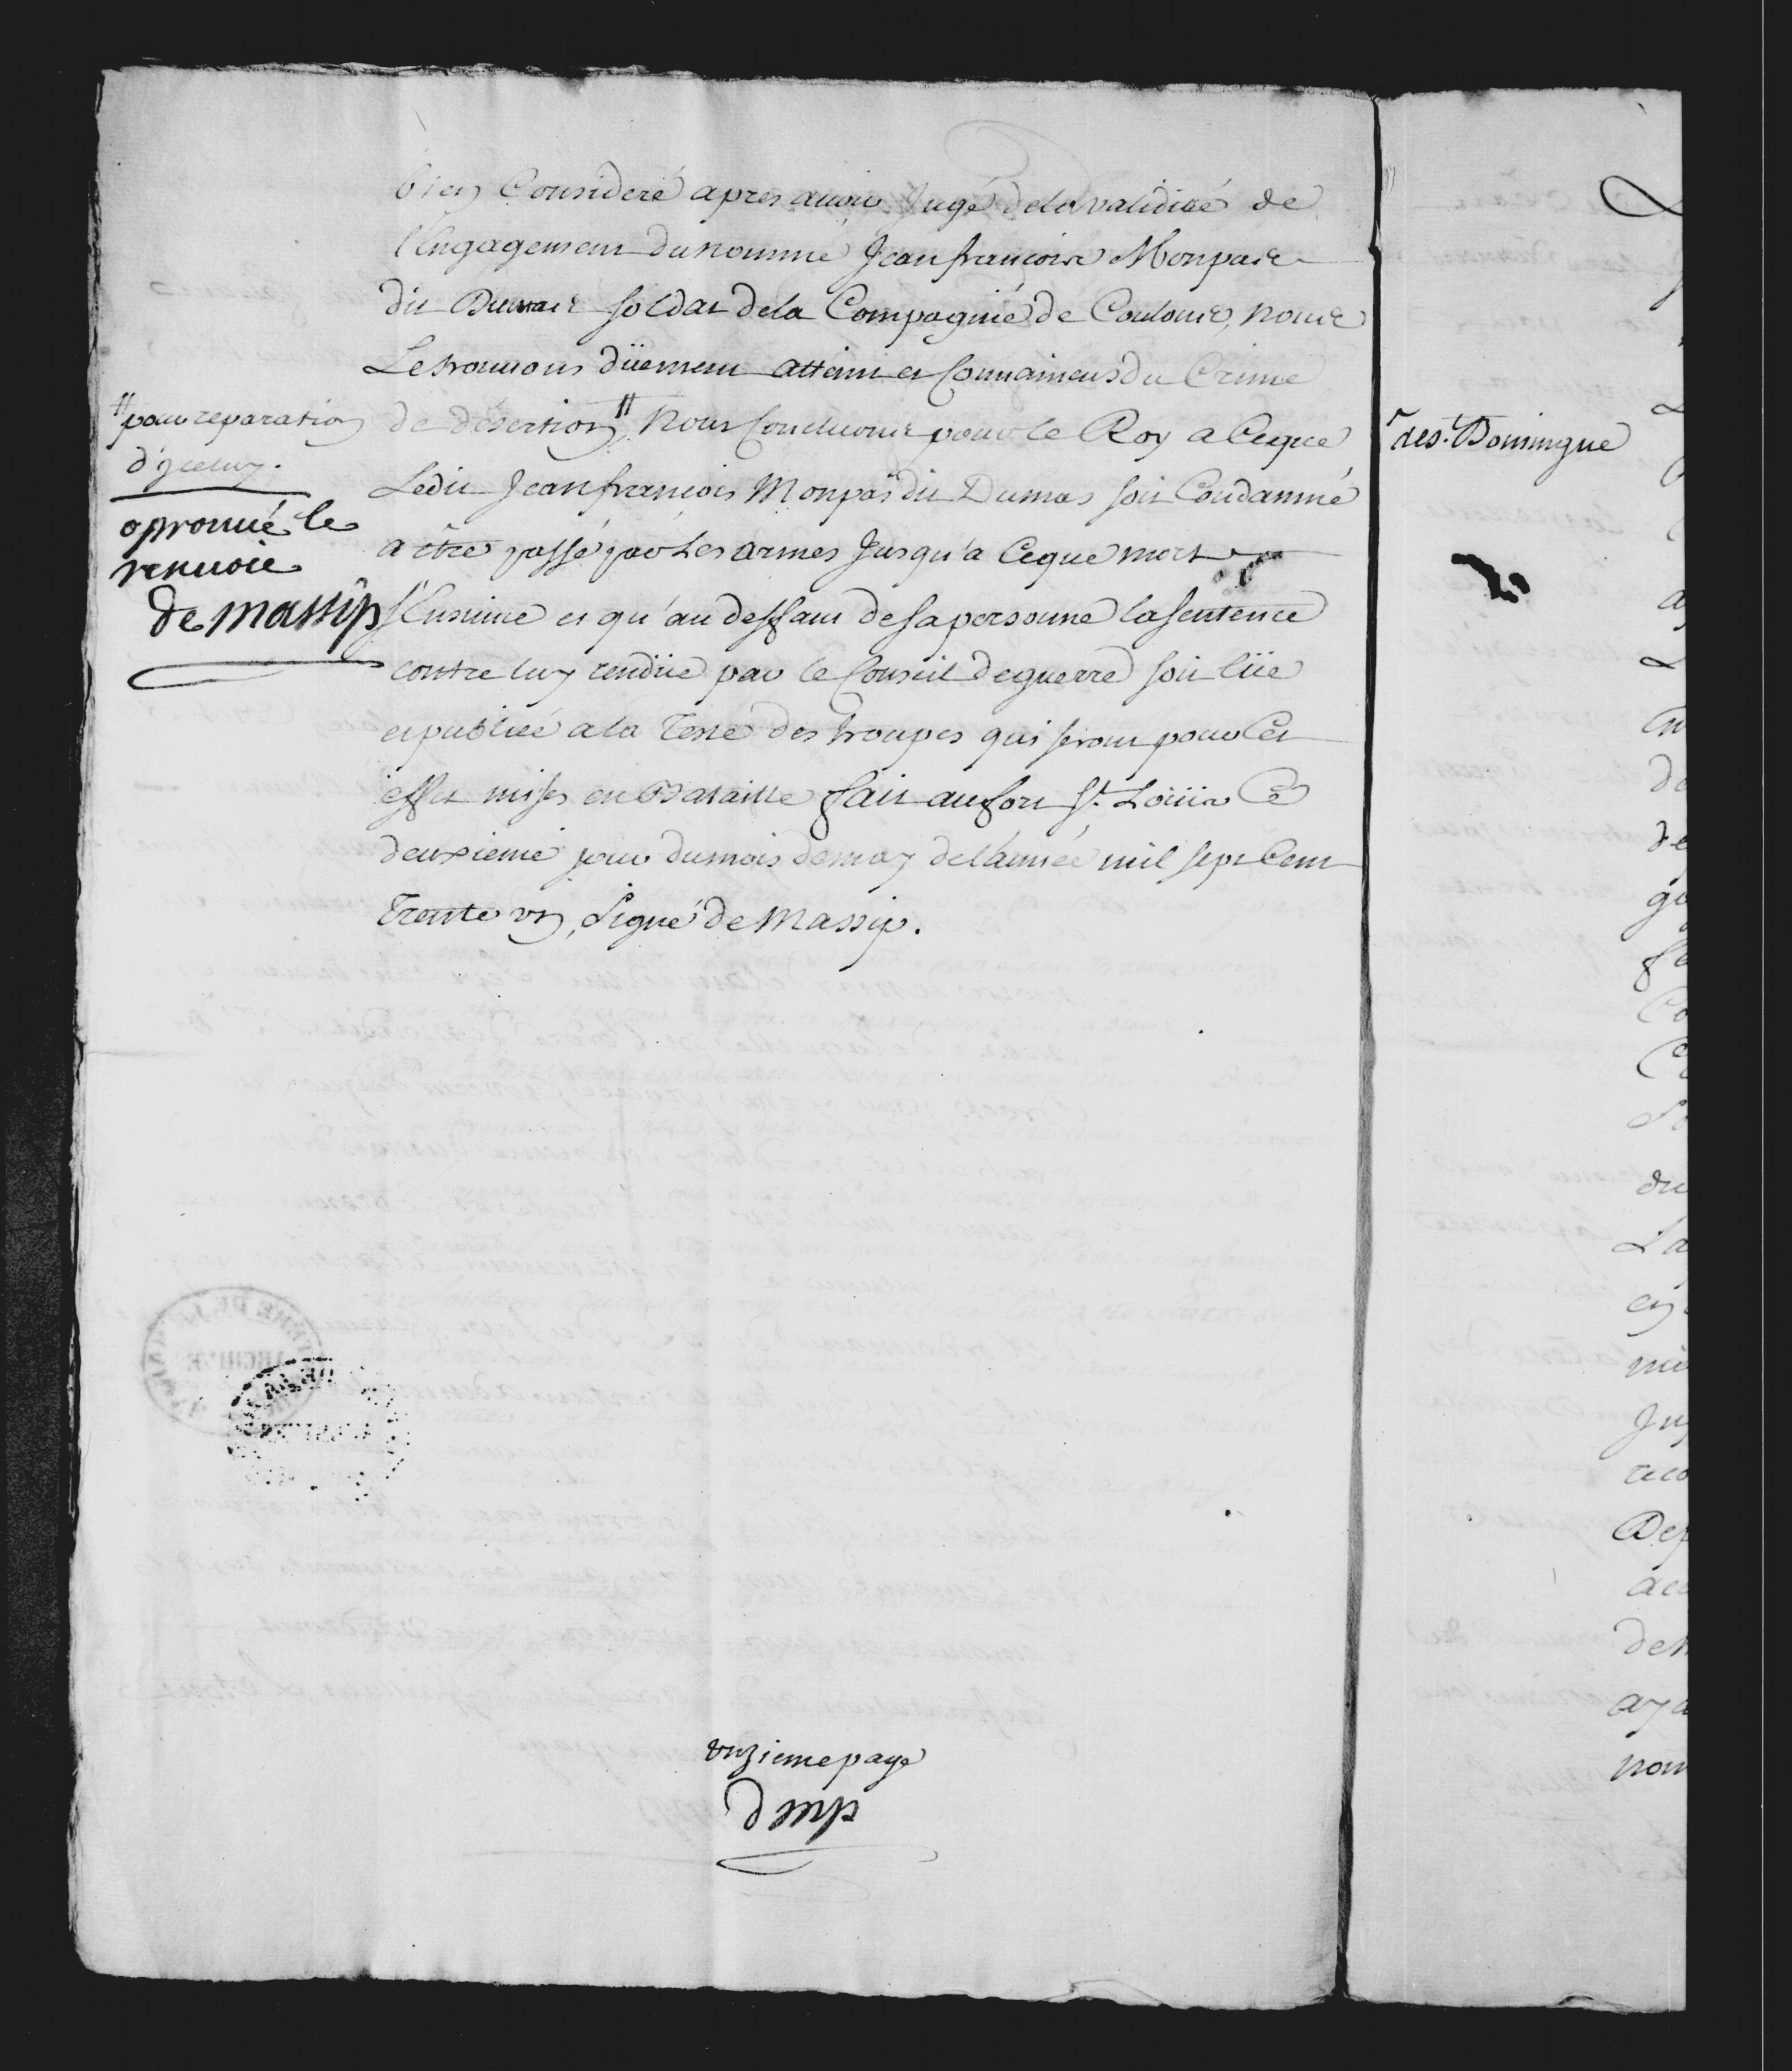 bien Consideré apres auoir Jugé dela validité de
l'Engagement du nommé Jean francois Monpas
dit Dumas soldat dela Compagnie de Coulom, nous
Le trouuons düement atteint et Conuaincus du Crime
de désertion // Nous Concluons pour le Roy a Ceque
Ledit Jean francois Monpas dit Dumas soit Condamné
a être passé par Les armes Jusqu'a Ceque mort
s'Ensuiue et qu'au deffaut desa personne la sentence
contre luy rendüe par le Conseil deguerre soit lüe
et publiée ala Teste des troupes qui seront pour Cet
effet mises en Bataille fait aufort St. Loüis Ce
deuxieme jour dumois demay del'année mil sept Cent
Trente un, Signé de Massip.
// pour reparation
d'yceluy.
aprouué le
renuoie
de massip
unzieme page
dmp
des. Domingue